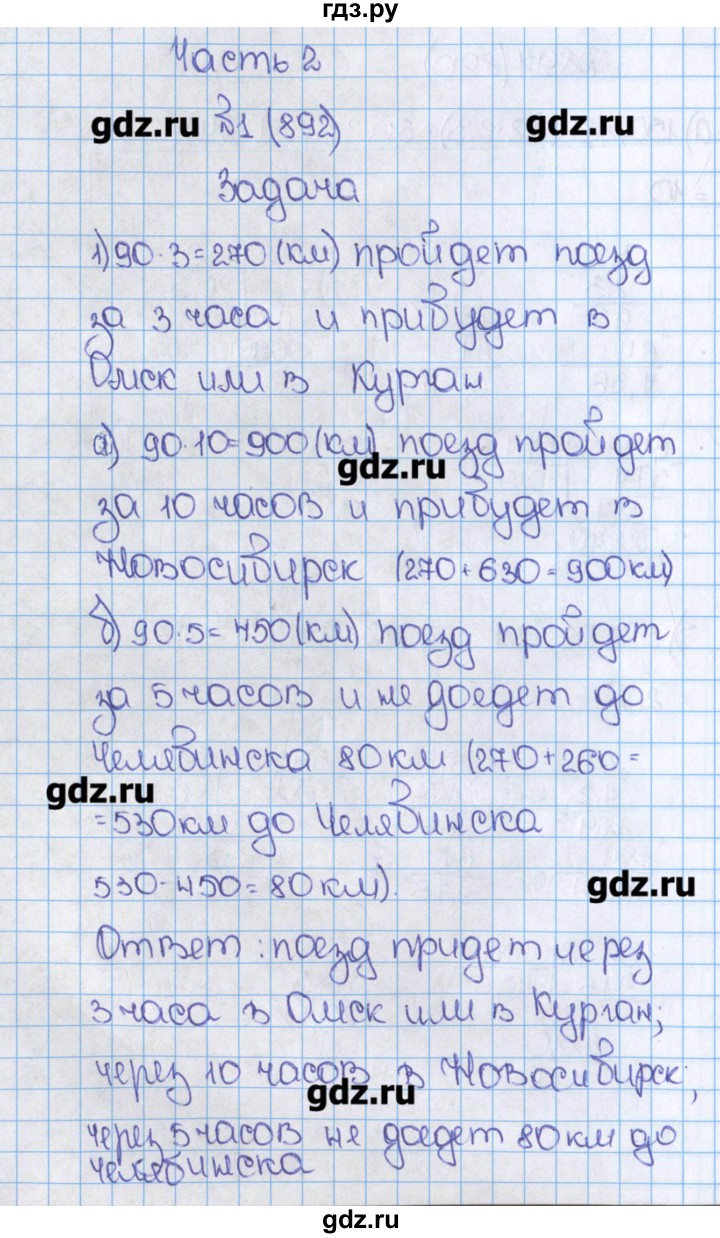 гдз.ру
Часть 2
gdz.ru №1 (892) gdz.ru
Задача
1) 90·3=270(км) пройдет поезд
за 3 часа и прибудет в
Омск или в Курган
а) 90·10=900(км) поезд пройдет
gdz.ru
за 10 часов и прибудет в
Новосибирск (270+630=900км)
б) 90·5=450(км) поезд пройдет
за 5 часов и не доедет до
Челябинска 80 км (270+260=
gdz.ru
=530км до Челябинска
530-450=80км).
gdz.ru
Ответ: поезд придет через
3 часа в Омск или в Курган;
через 10 часов в Новосибирск;
gdz.ru
через 5 часов не доедет 80 км до
челябинска
gdz.ru